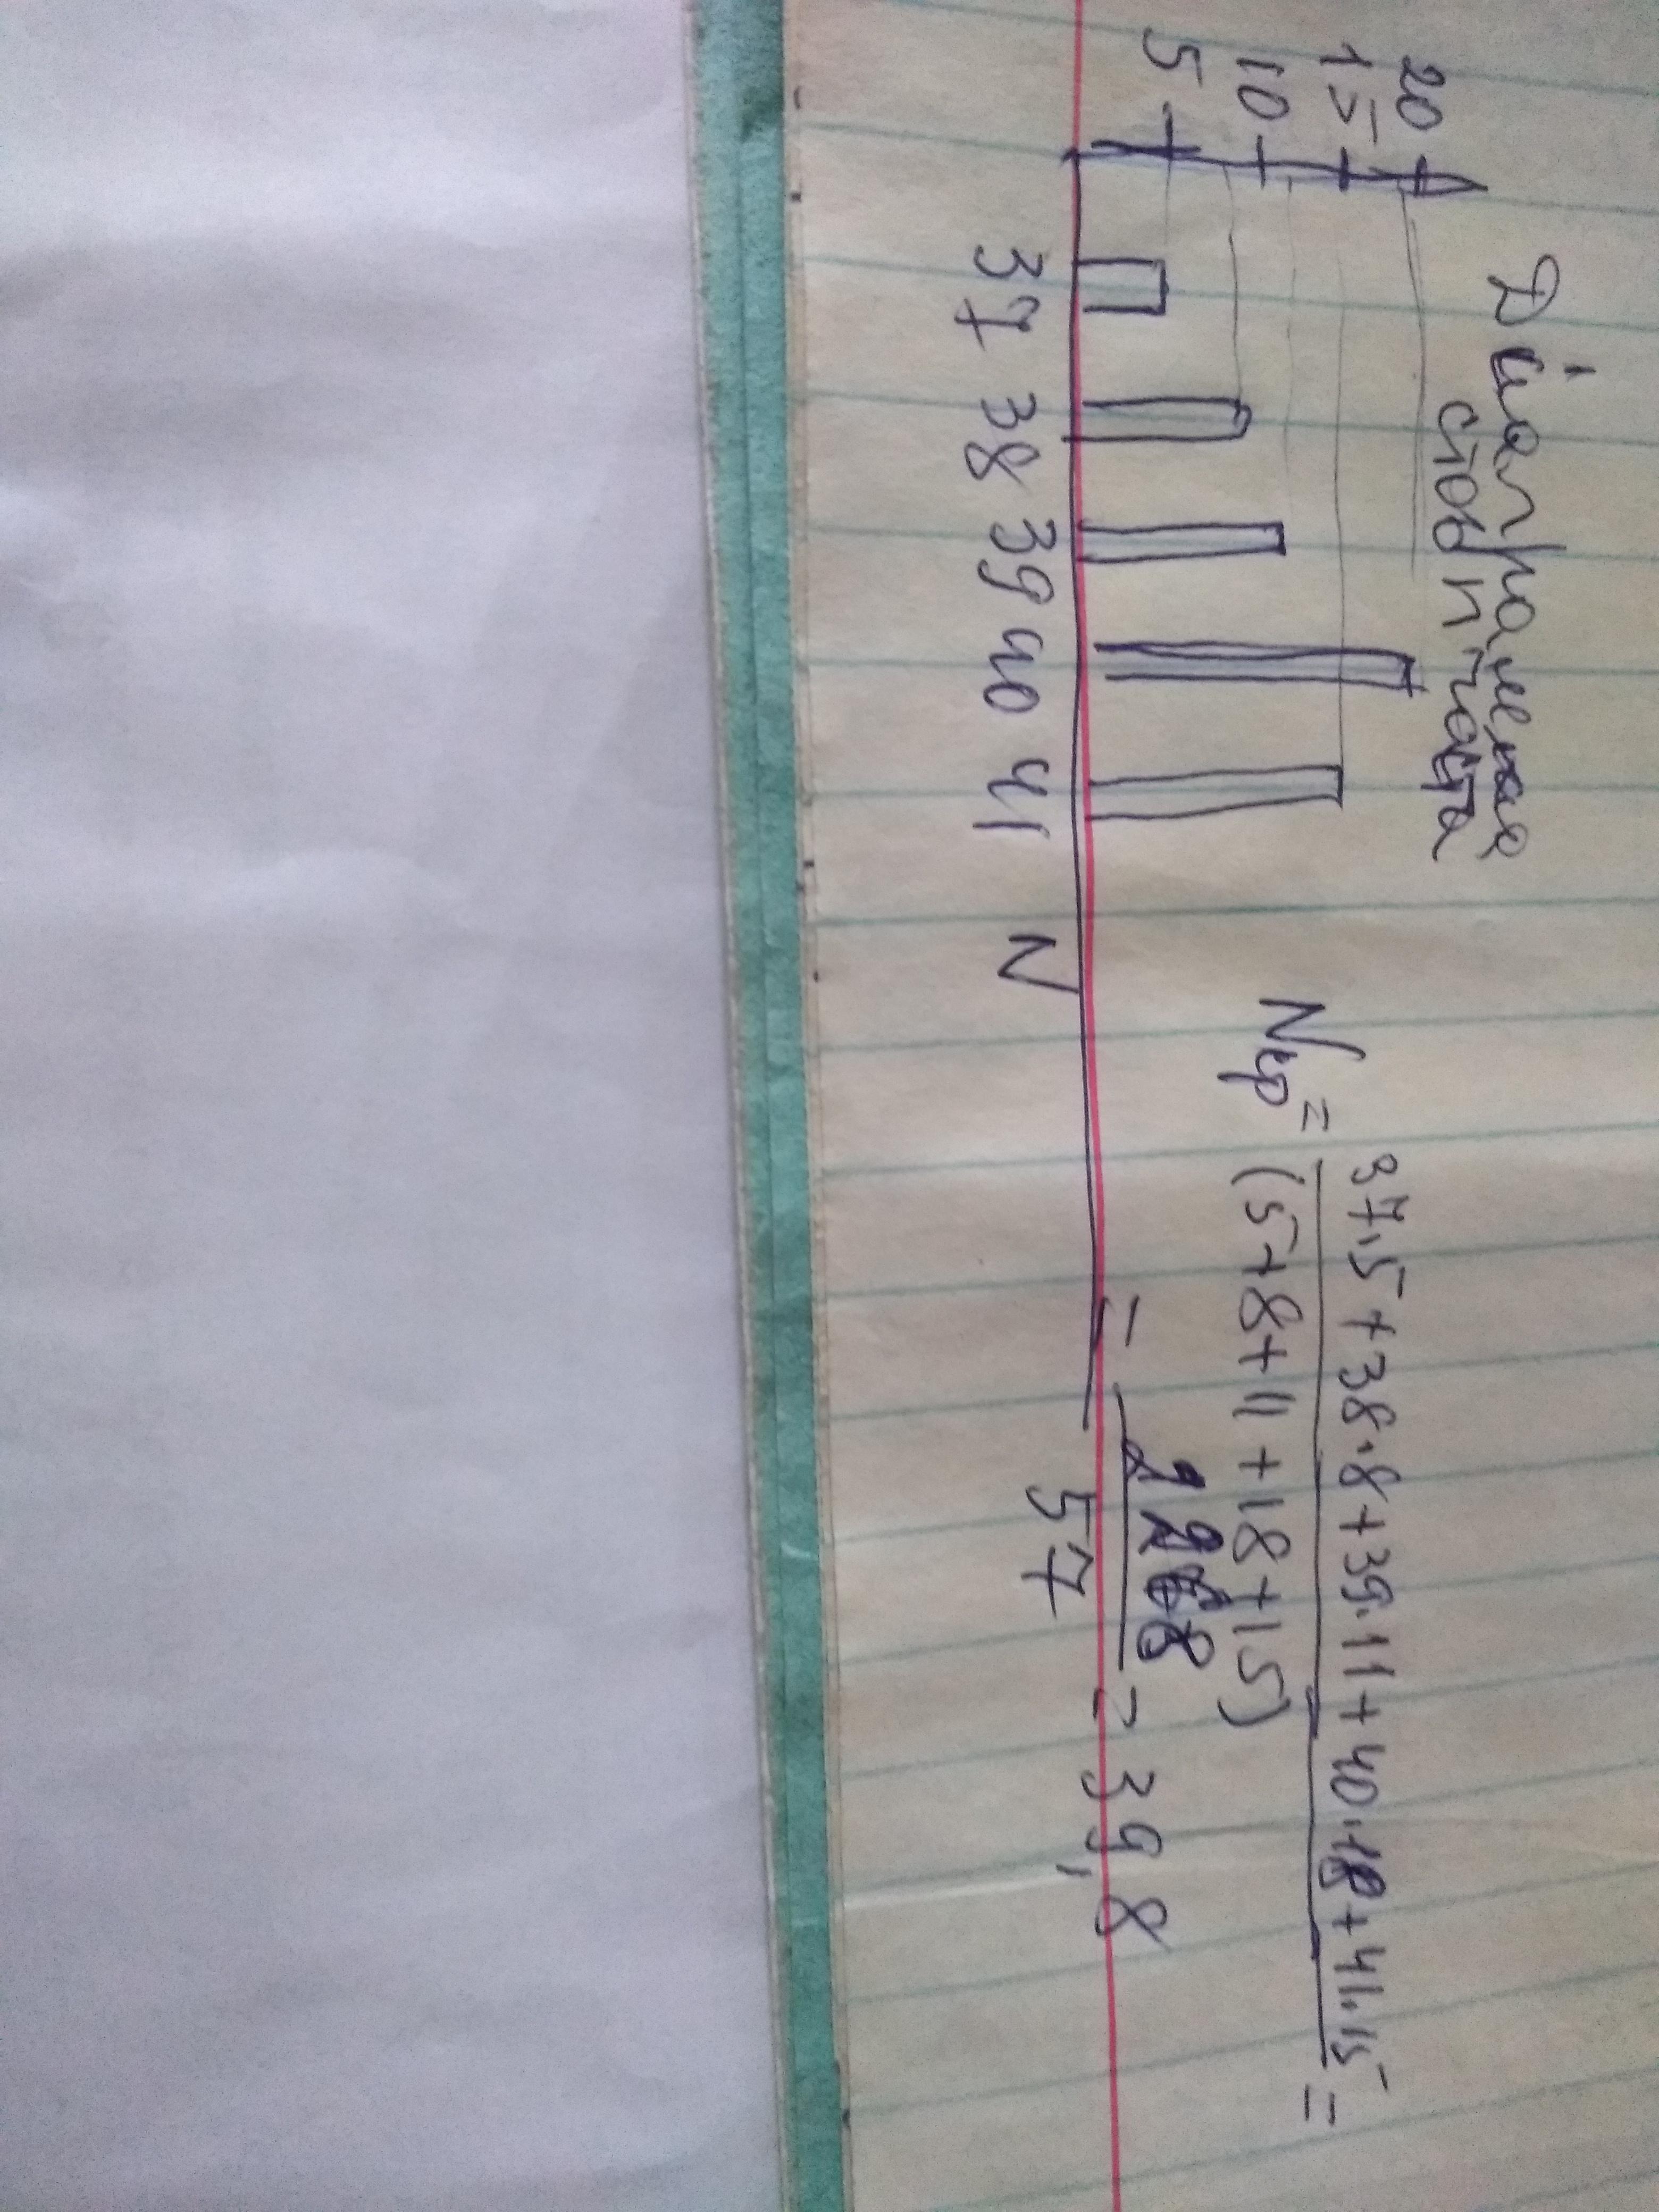 Діаграмечка
стовпчаста
20
15
10
5
37 38 39 40 41 N
Nср = 37·5 + 38·8 + 39·11 + 40·18 + 41·15 =
(5+8+11+18+15)
= 2268
57
= 39,8